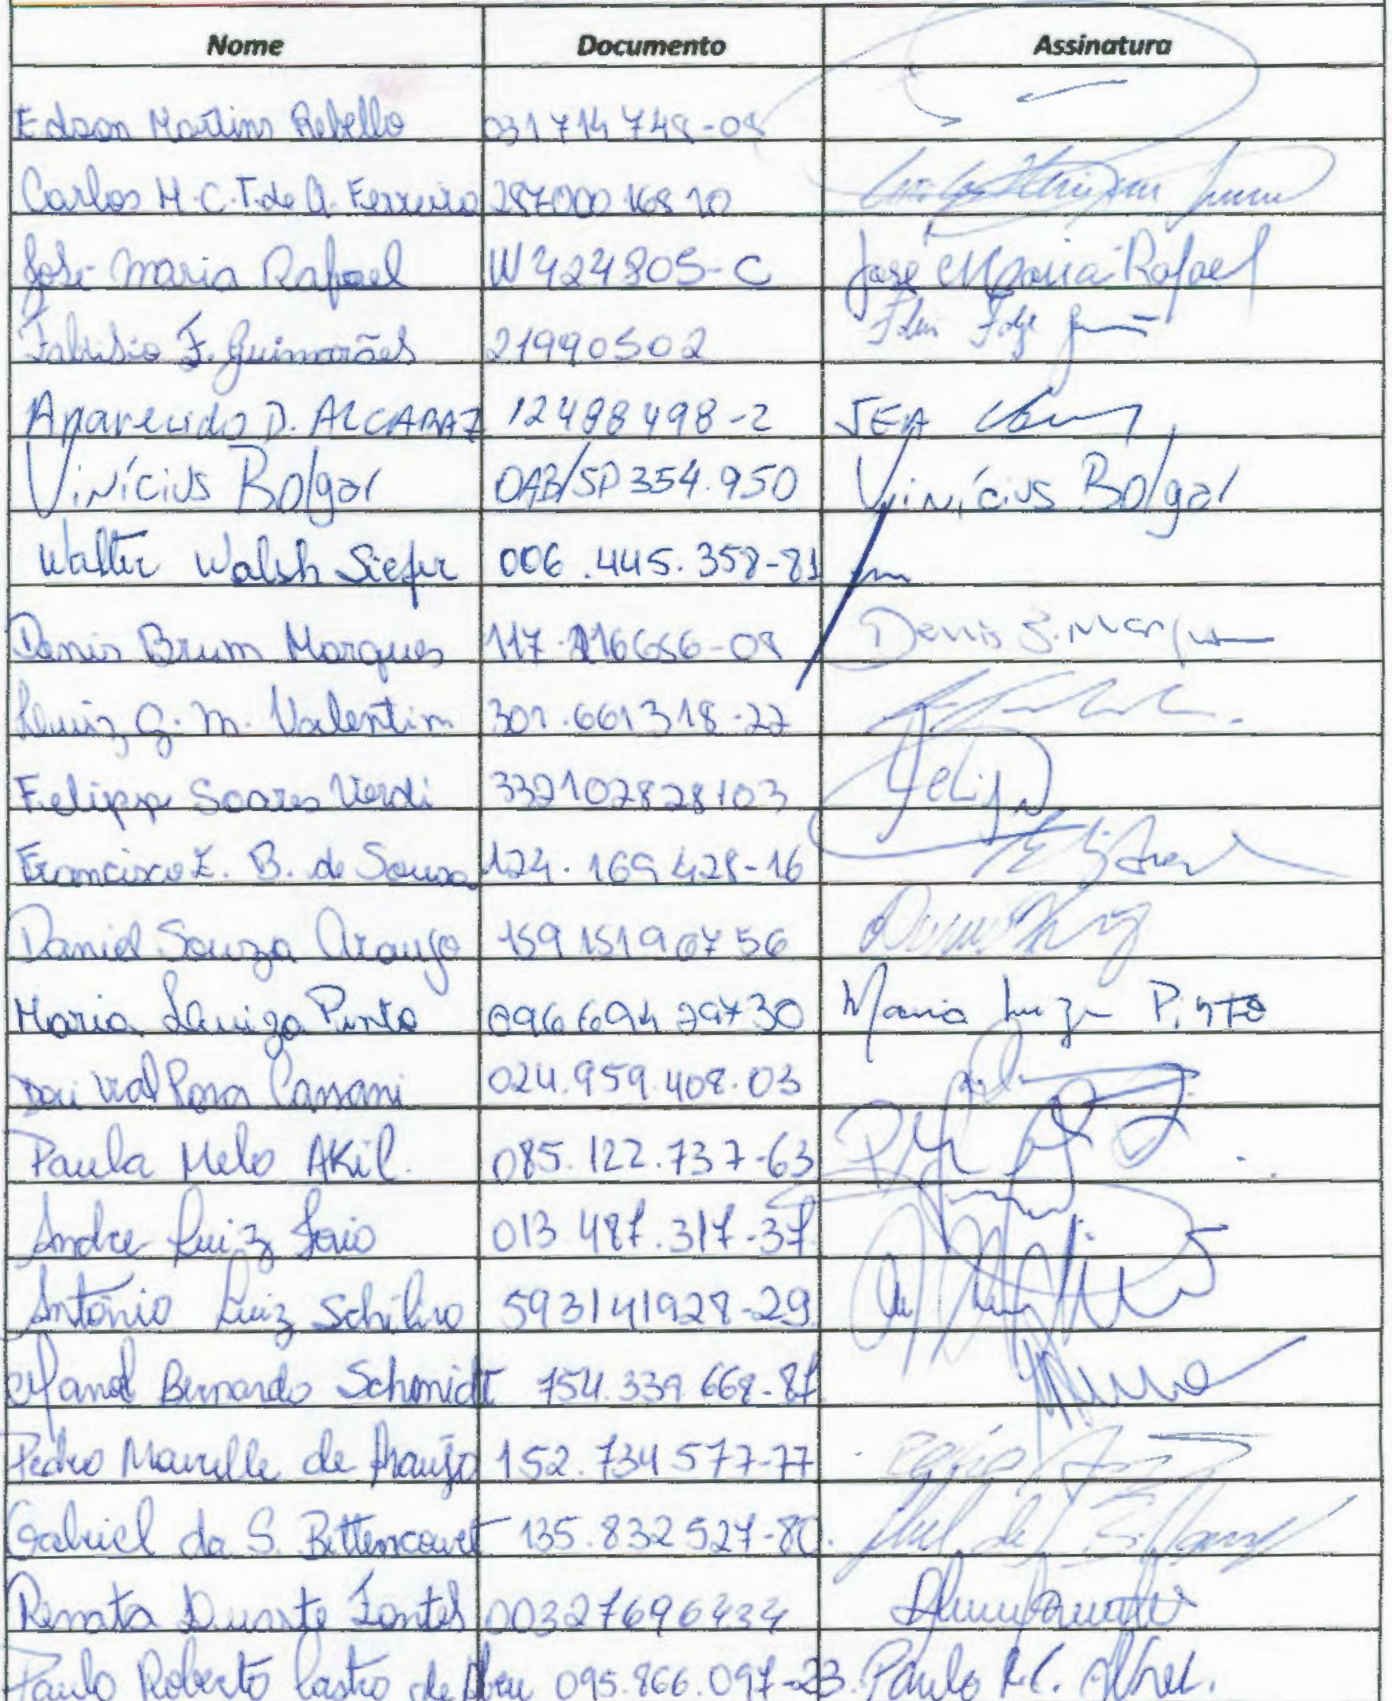 Nome Documento Assinatura
Edson Martins Rebello 031714748-08
Carlos H.C.T. de A. Ferreira 287000168 10
José Maria Rafael W424805-C José Maria Rafael
Fabrisio F. Guimarães 21990502
Aparecido D. ALCARAZ 12498498-2 JEA
Vinícius Bolgar OAB/SP 354.950 Vinícius Bolgar
Walter Walsh Siefer 006.445.358-81
Denis Brum Marques 117. 016656-08 Denis B. Marques
Luiz G. M. Valentim 301.661318-22
Felippe Soares Verdi 332102828103 Felipe
Francisco E. B. de Sousa 124.169 428-16
Daniel Souza Araujo 159 151 907 56
Maria Luiza Pinto 096 694 297 30 Maria Luiza Pinto
Rosa Canani 024.959.408.03
Paula Melo AKiL. 085.122.737-63
Andre Luiz Foio 013 487.317-37
Antônio Luiz Schiliro 593141928-29
Manoel Bernardo Schmidt 754.339.668-87
Pedro Maville de Araujo 152.734 577-77
Gabriel da S. Bittencourt 135.832 527-80.
Renata Duarte Fontes 00327696434
Paulo Roberto Castro de Abreu 095.866.097-23. Paulo R.C. Abreu.